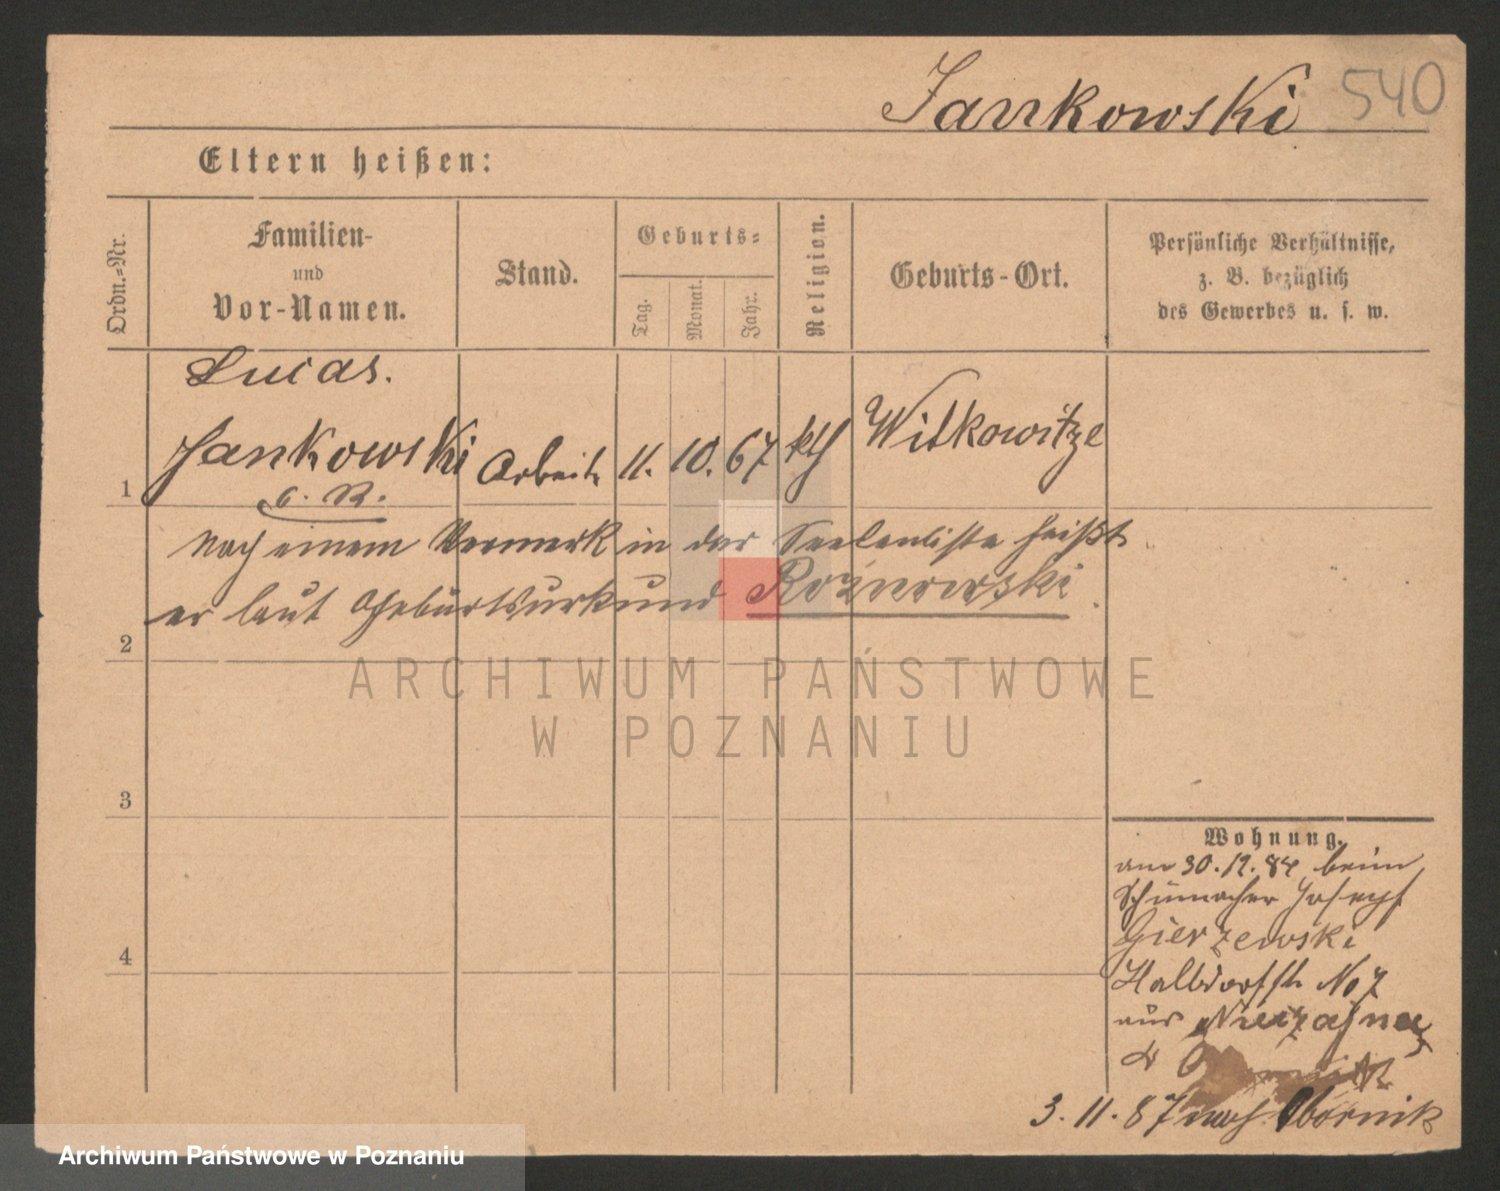 Jankowski 540
Eltern heißen:
Ordn.-Nr.
Familien-
und
Vor-Namen.
Stand.
Geburts-
Tag.
Monat.
Jahr.
Religion.
Geburts-Ort.
Persönliche Verhältnisse,
z. B. bezüglich
des Gewerbes u. s. w.
Lucas.
1 Jankowski Arbeitr 11. 10. 67 kth Witkowitze
c. R.
Nach einem Vermerk in der Seelenliste heißt
er laut Geburtsurkund
2
3
4
Wohnung.
am 30.12.84 beim
Schumacher Joseph
Gierzewski
Halbdorfstr No 7
aus
3. 11. 87 nach Obornik
ARCHIWUM PAŃSTWOWE
W POZNANIU
Archiwum Państwowe w Poznaniu